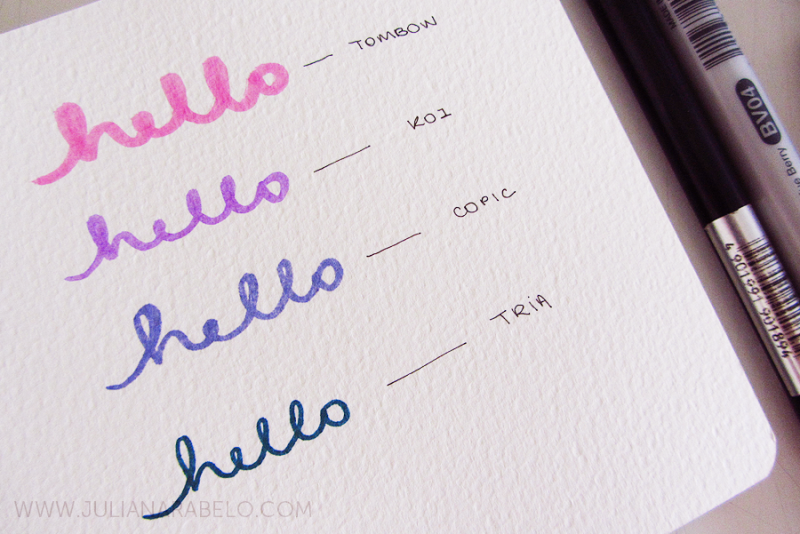 hello — TOMBOW
hello — KOI
hello — COPIC
hello — TRiA
WWW.JULIANARABELO.COM
BV04
Berry
4 901991 901894